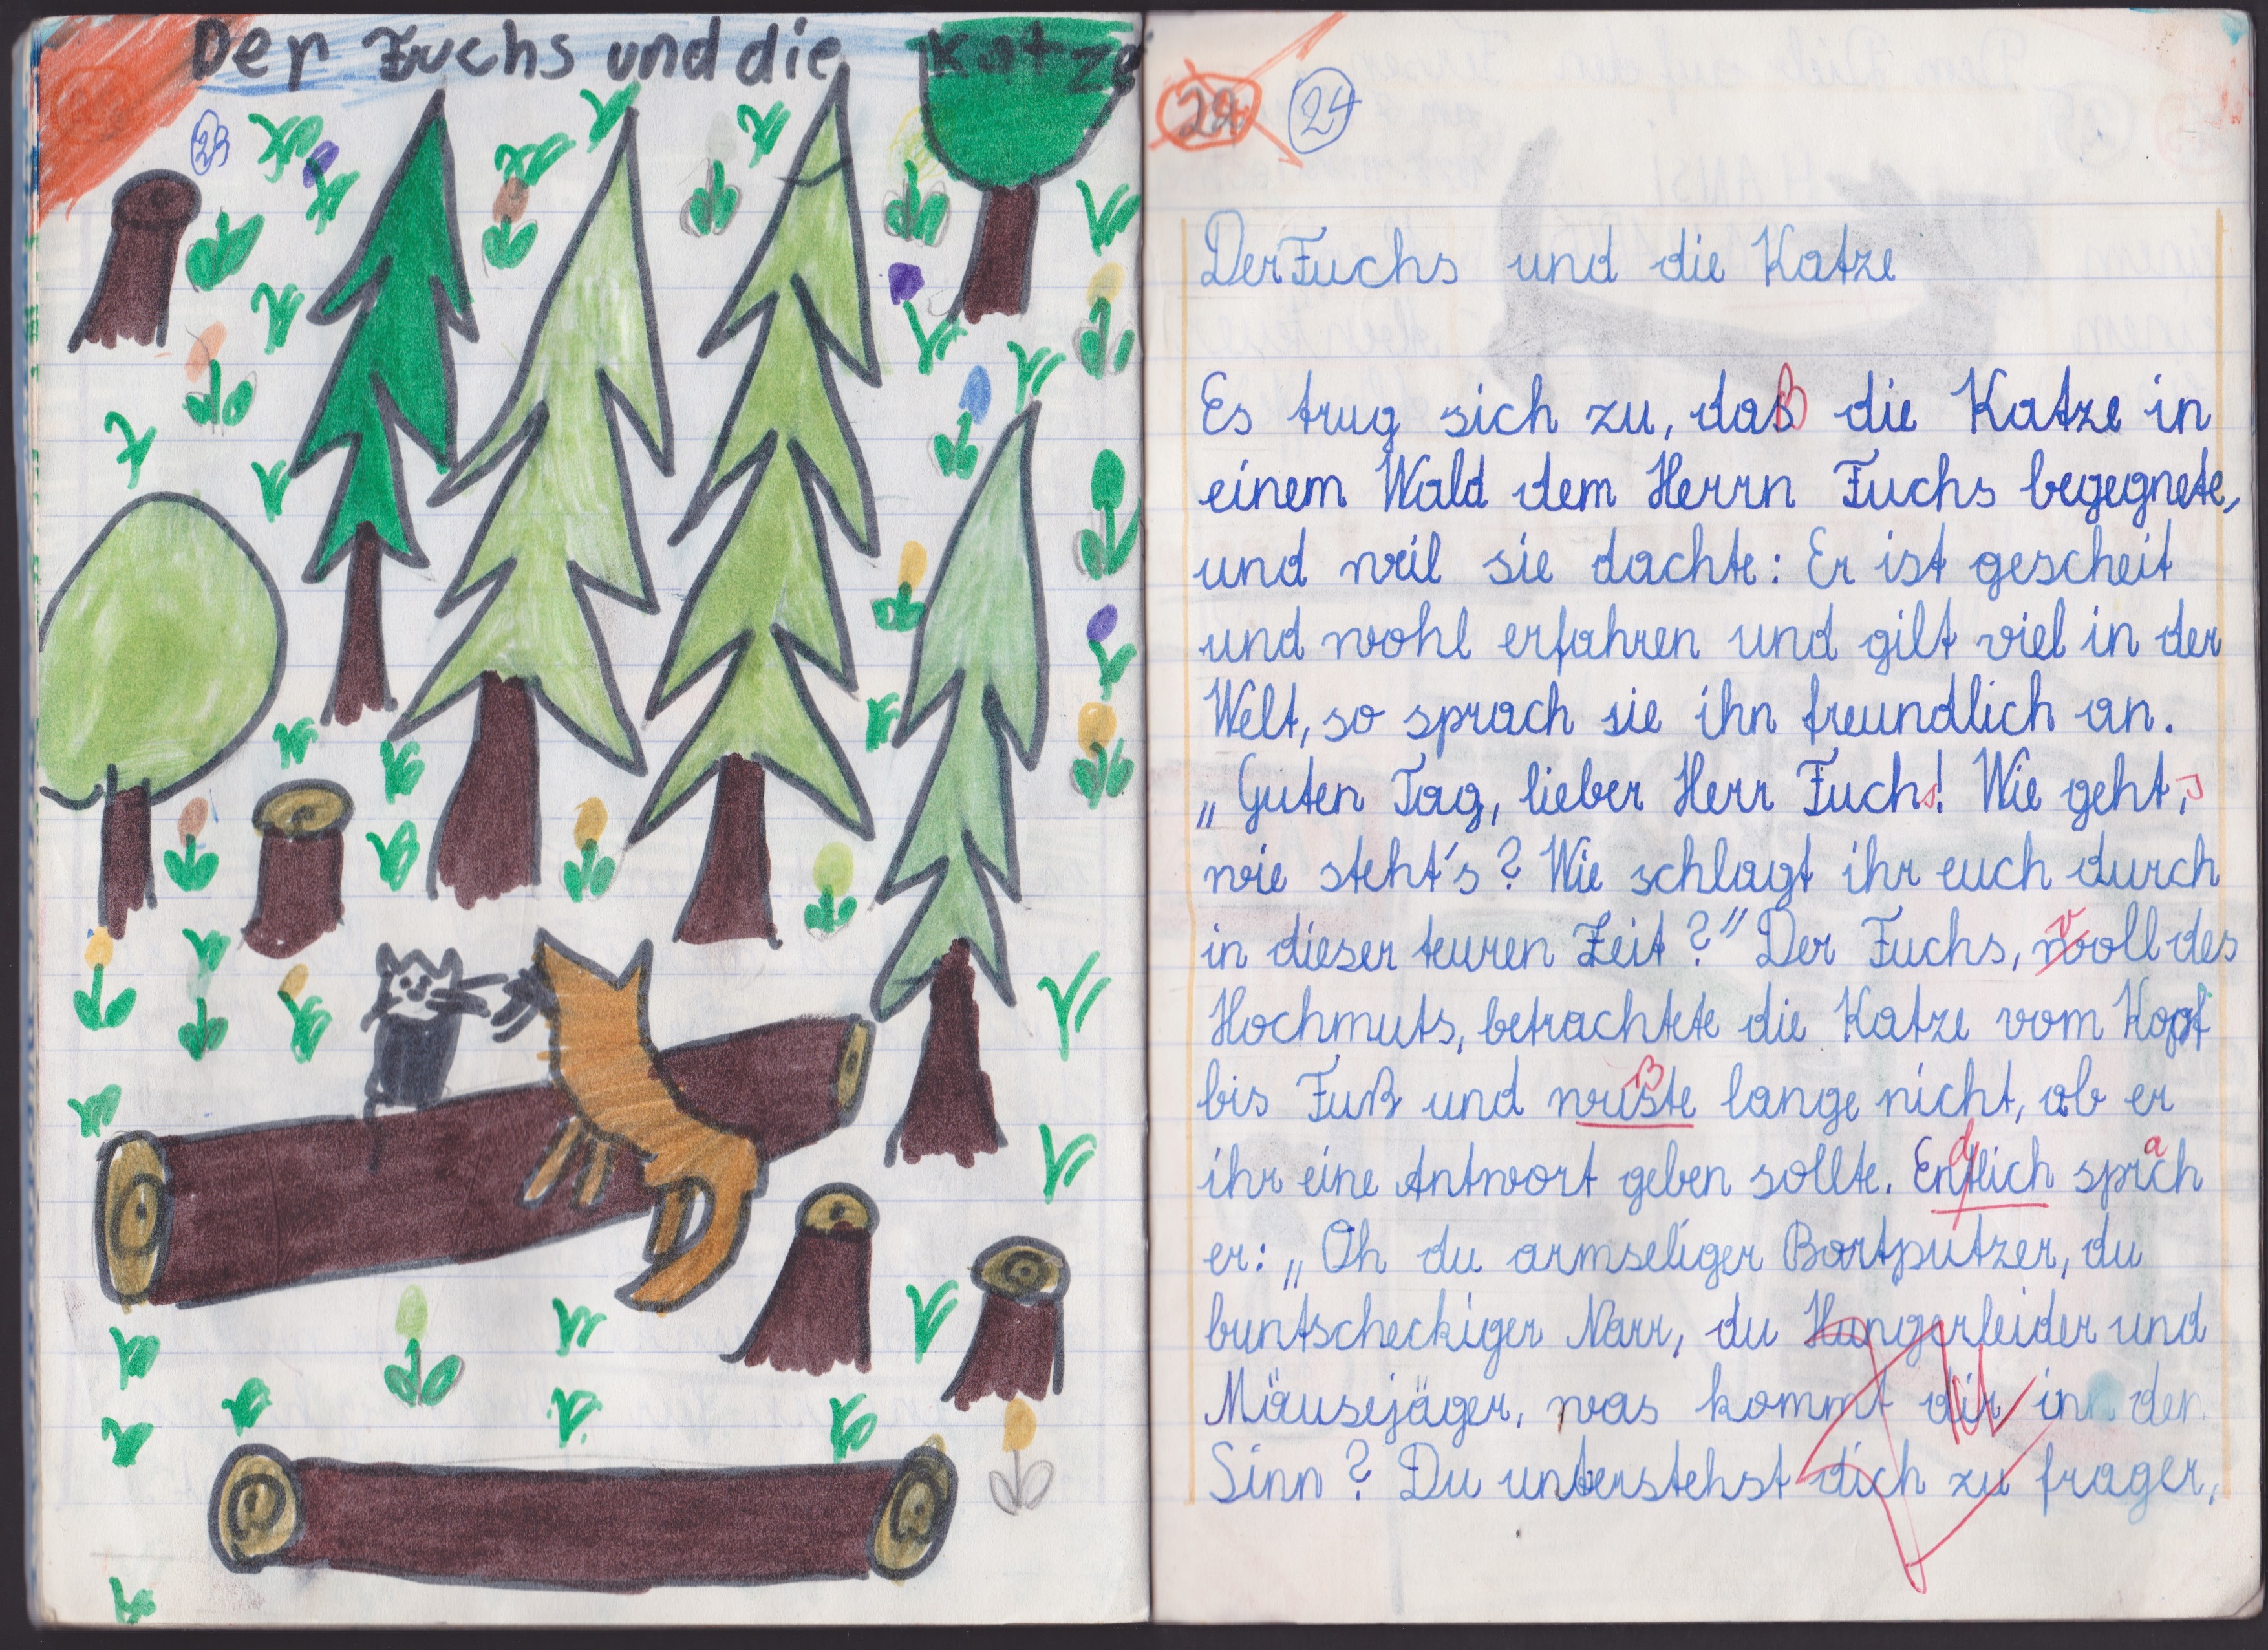 Der Fuchs und die Katze
23
24
Der Fuchs und die Katze
Es trug sich zu, daß die Katze in
einem Wald dem Herrn Fuchs begegnete,
und weil sie dachte: Er ist gescheit
und wohl erfahren und gilt viel in der
Welt, so sprach sie ihn freundlich an.
„Guten Tag, lieber Herr Fuchs! Wie geht's,
wie steht's? Wie schlagt ihr euch durch
in dieser teuren Zeit?" Der Fuchs, voll des
Hochmuts, betrachtete die Katze vom Kopf
bis Fuß und wußte lange nicht, ob er
ihr eine Antwort geben sollte. Endlich sprach
er: „Oh du armseliger Bartputzer, du
buntscheckiger Narr, du Hungerleider und
Mäusejäger, was kommt dir in den
Sinn? Du unterstehst dich zu fragen,